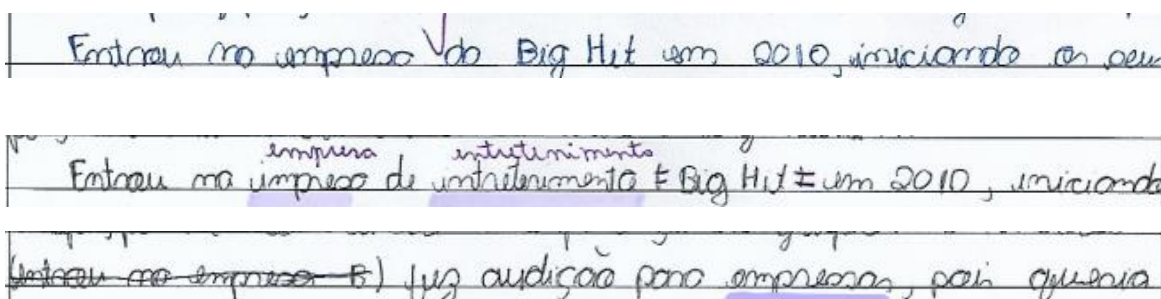 Entrou na empresa da Big Hit em 2010, iniciando os seus
empresa entretenimento
Entrou na impresa de intretenimento ‡ Big Hit ‡ em 2010, iniciando
(entrou na empresa B) fez audição para empresas, pois queria